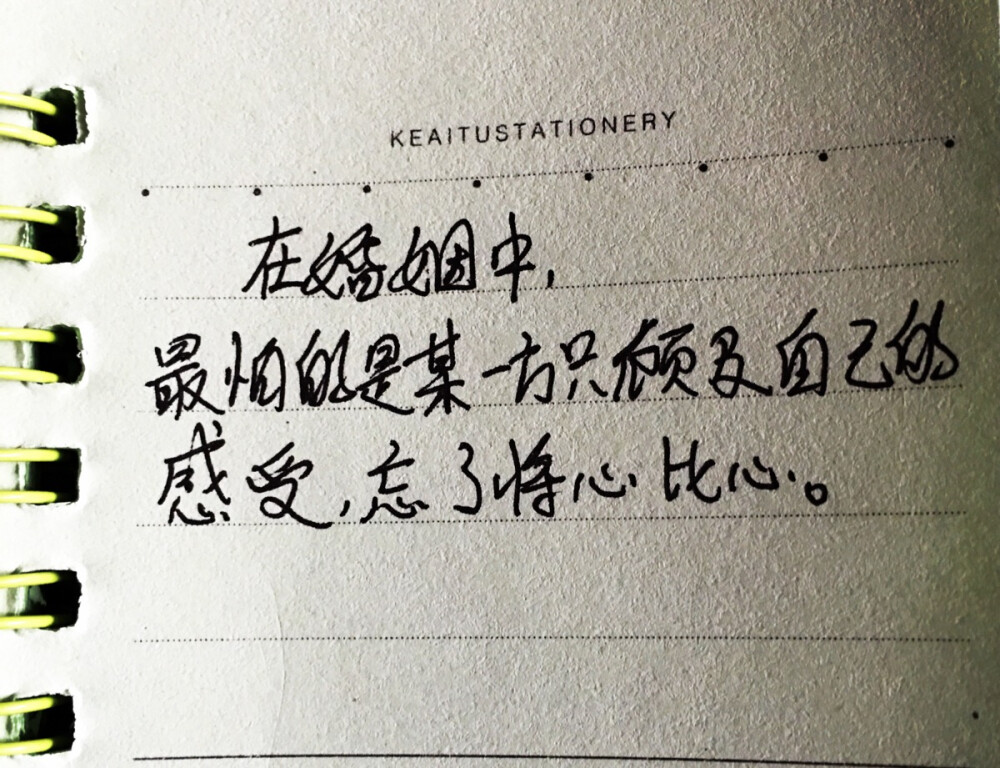 KEAITUSTATIONERY
在婚姻中,
最怕的是某一方只顾及自己的
感受,忘了将心比心。